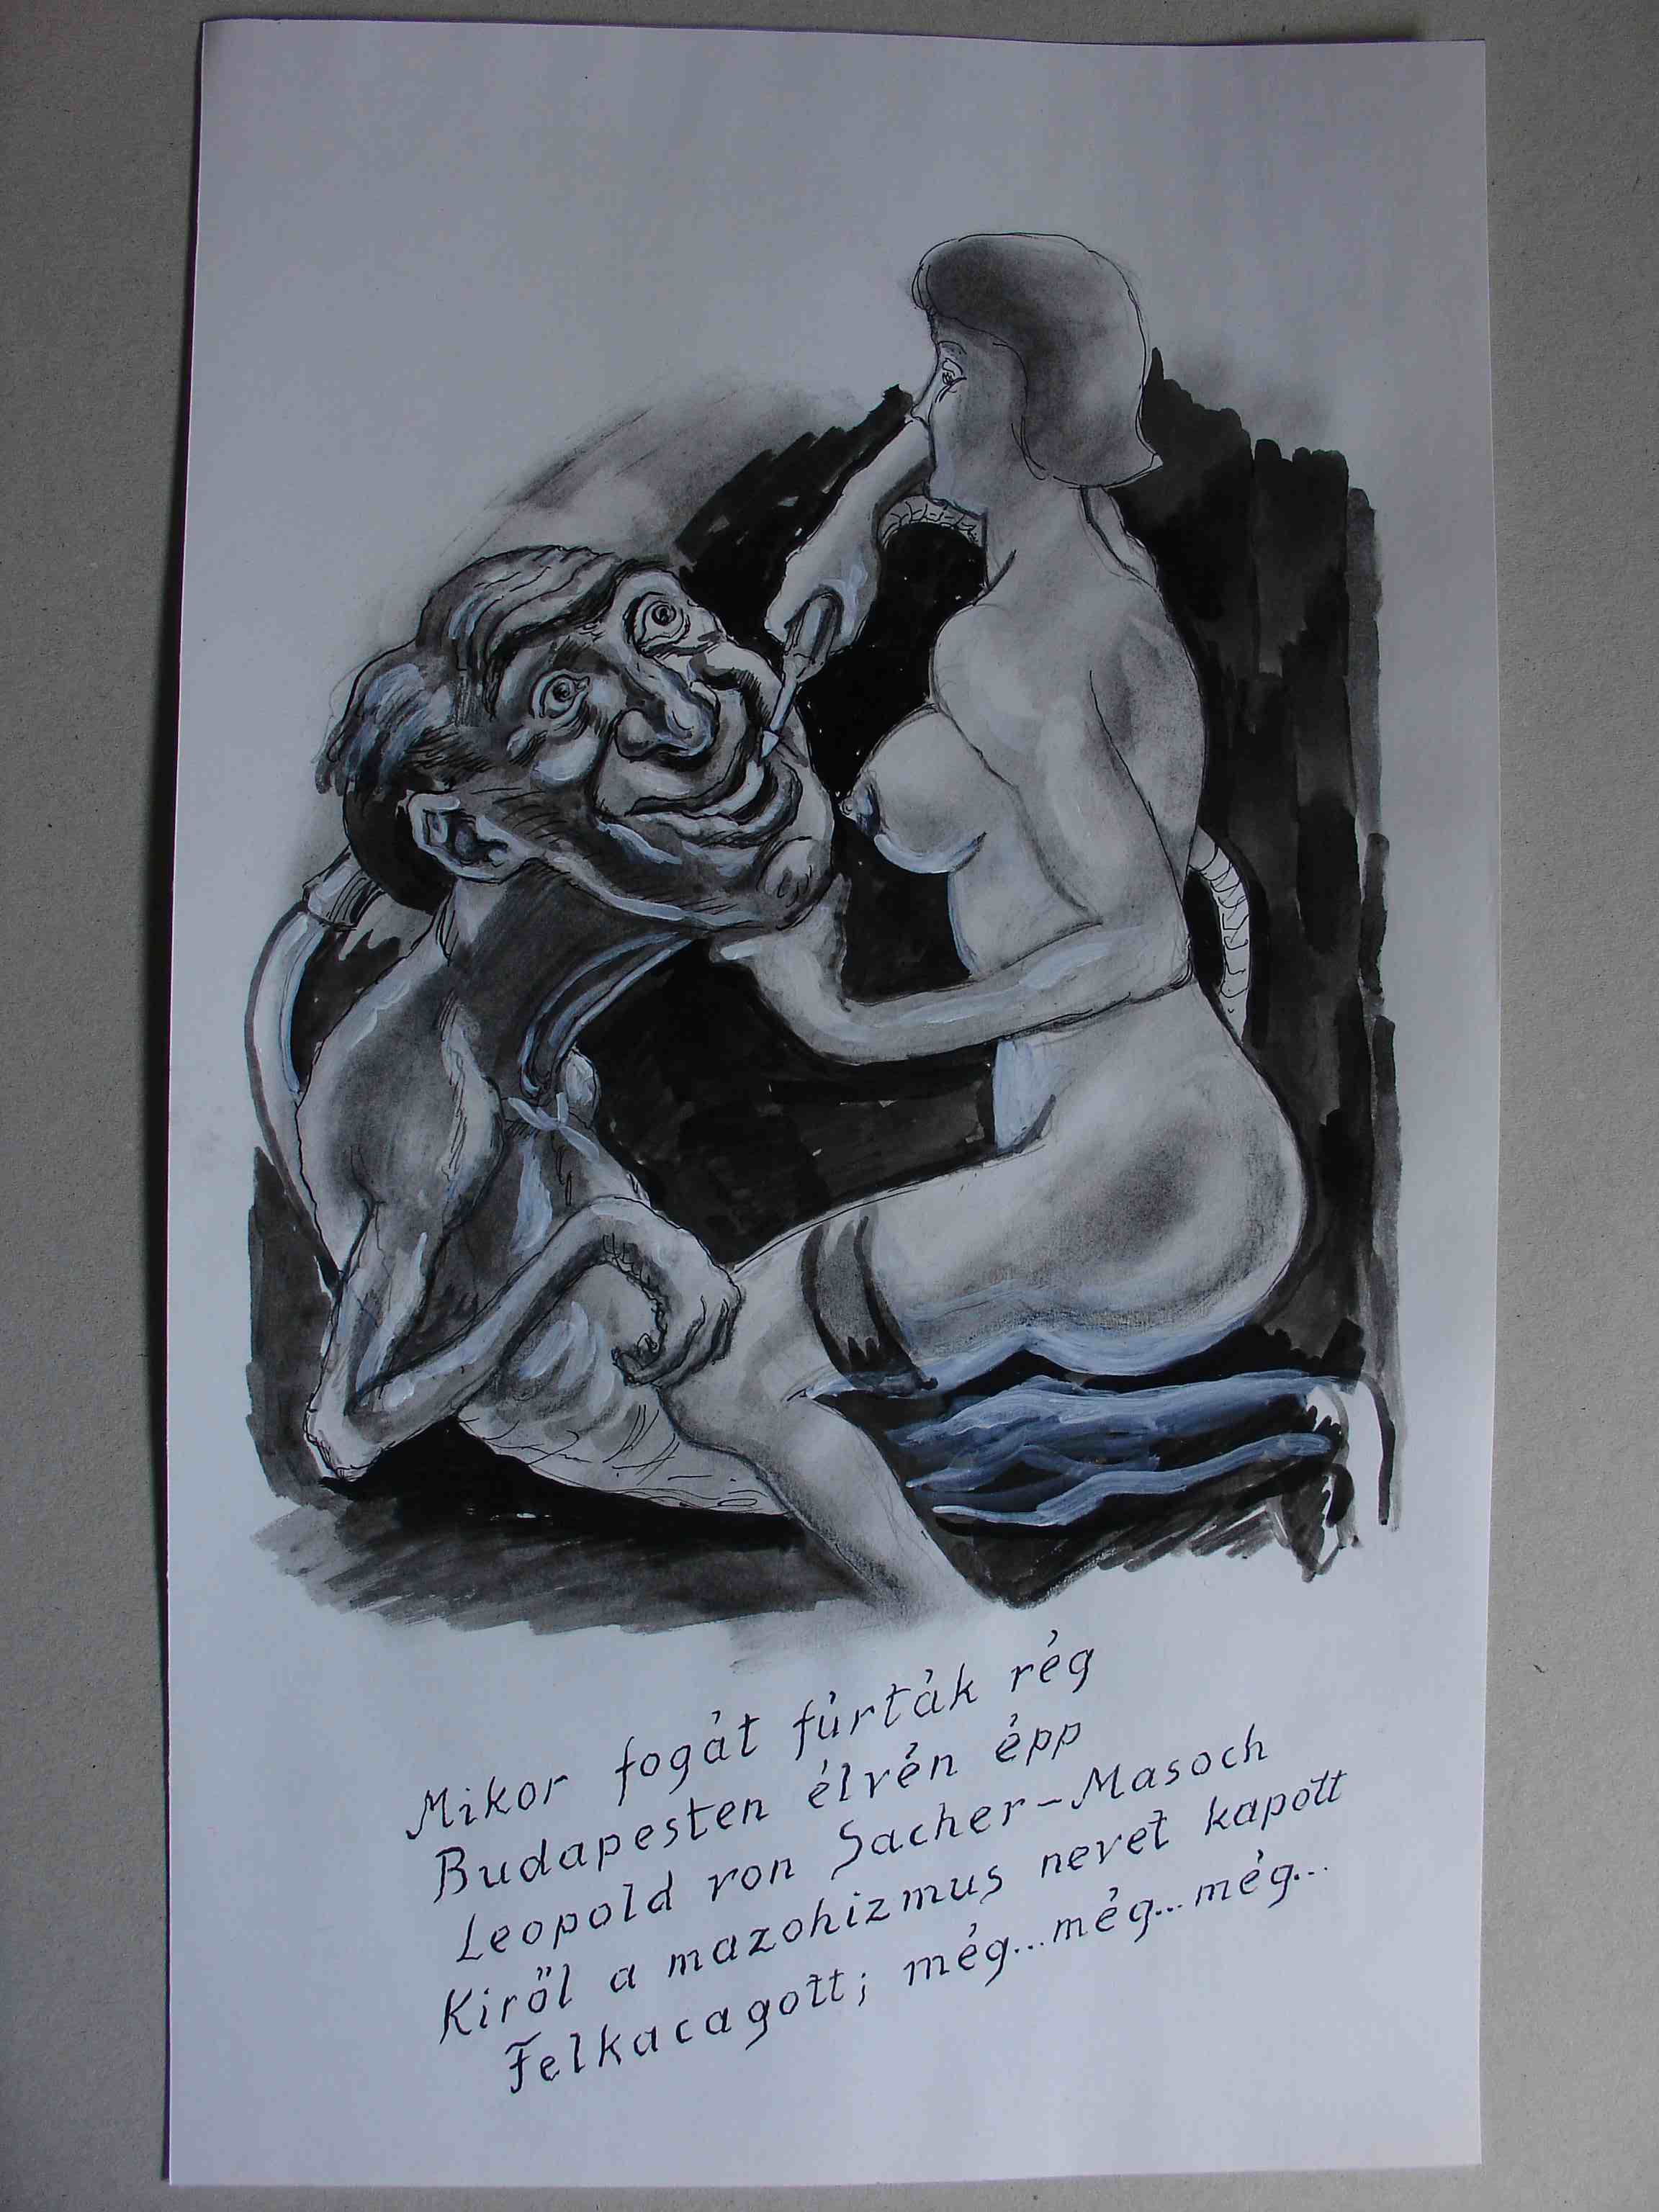 Mikor fogát fúrták rég
Budapesten élvén épp
Leopold von Sacher-Masoch
Kiről a mazohizmus nevet kapott
Felkacagott; még...még...még...